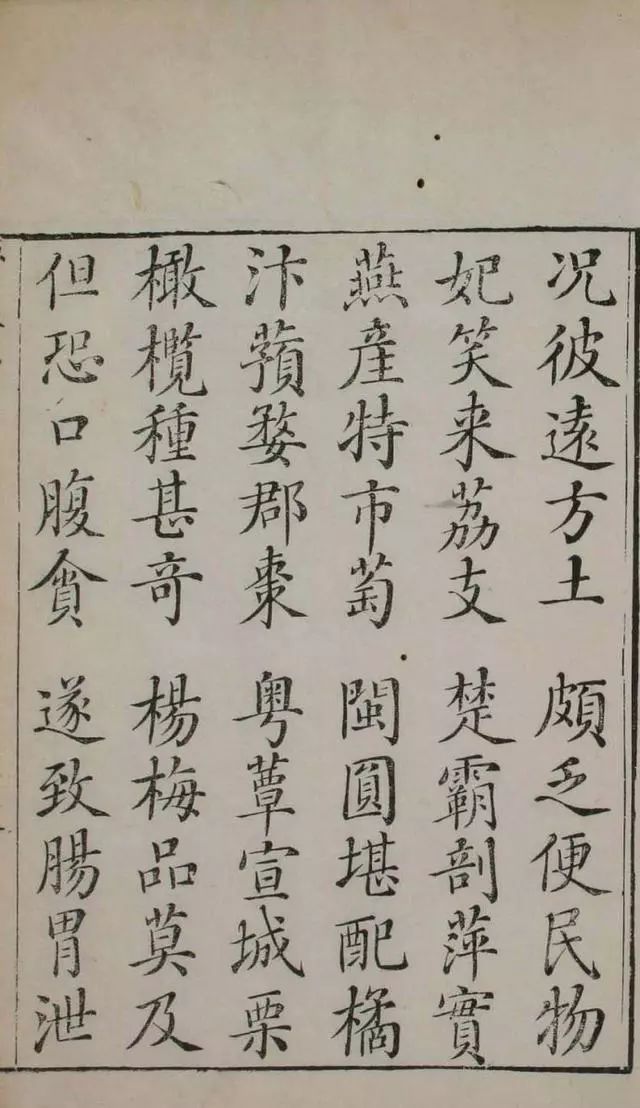 况彼遠方土 頗乏便民物
妃笑来荔支 楚霸剖萍實
燕産特市萄 閩圓堪配橘
汴蘋婺郡棗 粤蕈宣城栗
橄欖種甚竒 楊梅品莫及
但恐口腹貪 遂致腸胃泄